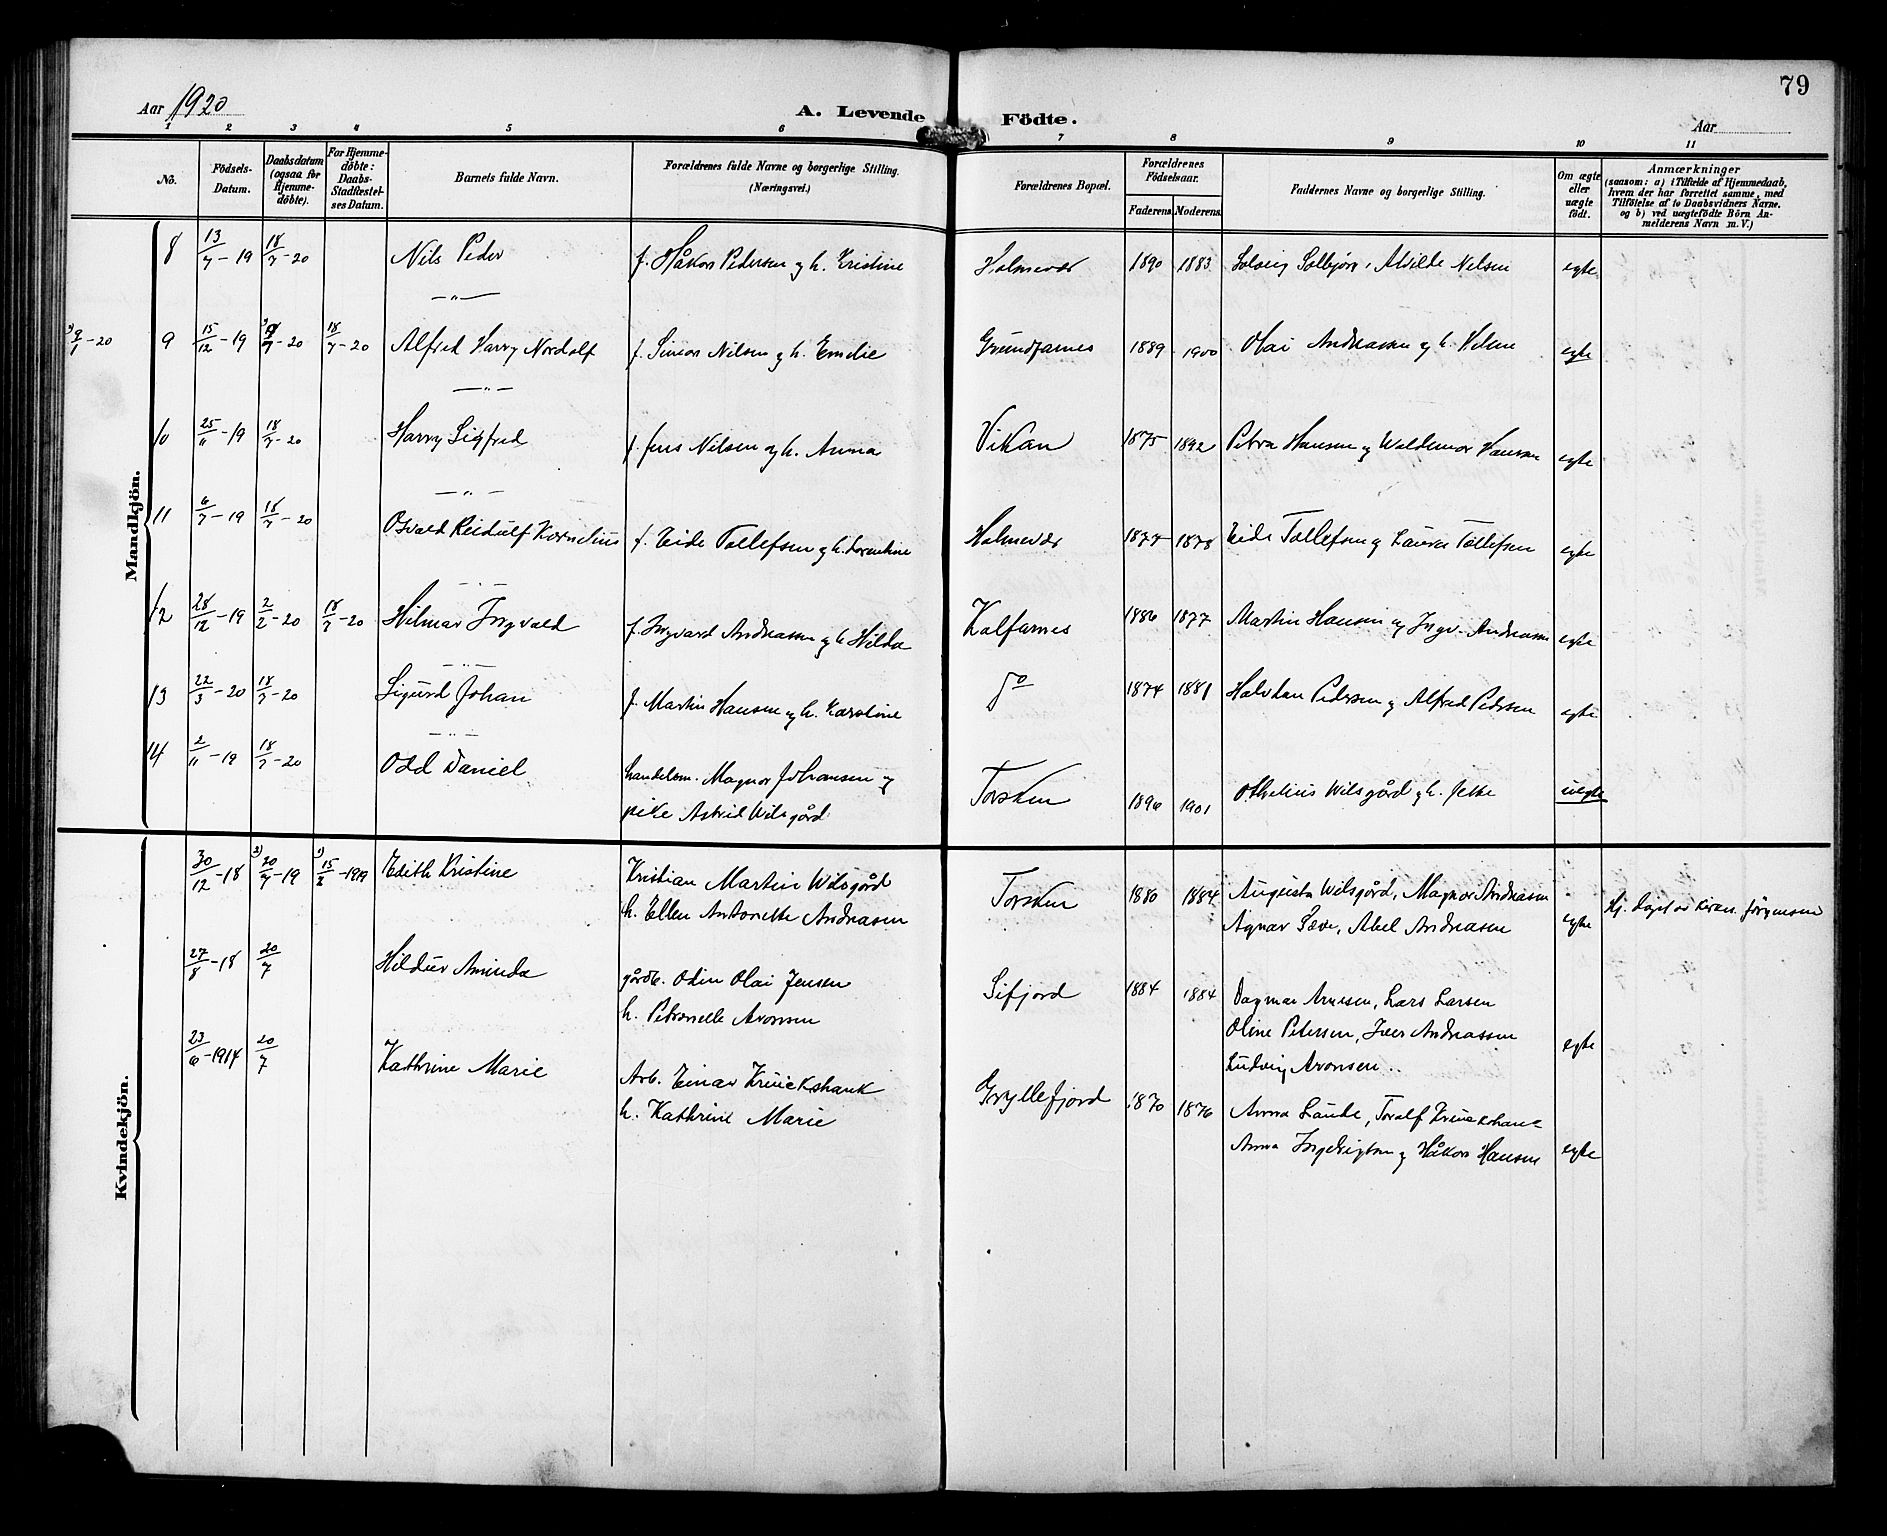 79
Aar 1920
A. Levende Födte.
Aar
1 2 3 4 5 6 7 8 9 10 11
No.
Födsels-Datum.
Daabsdatum (ogsaa for Hjemme-döbte).
For Hjemme-döbte: Daabs-Stadfæstel-ses Datum.
Barnets fulde Navn.
Forældrenes fulde Navne og borgerlige Stilling. (Næringsvei.)
Forældrenes Bopæl.
Forældrenes Födselsaar.
Faderens Moderens
Faddernes Navne og borgerlige Stilling.
Om ægte eller uægte födt.
Anmærkninger
(saasom: a) i Tilfælde af Hjemmedaab, hvem der har forrettet samme, med Tilföielse af to Daabsvidners Navne, og b) ved uægtefödte Börn An-melderens Navn m. V.)
Mandkjön.
8 13/7-19 18/7-20 Nils Peder f. Håkon Pedersen og h. Kristine Holmevær 1890 1883 Solveig Solbjørg, Alvilde Nilsen egte
-"-
9/1-20 9 15/12-19 18/7-20 Alfred Harry Nordolf f. Simon Nilsen og h. Emelie Grundfarnes 1889 1900 Olai Andreassen og h. egte
-"-
10 25/11-19 18/7-20 Harry Sigfred f. Jens Nilsen og h. Anna Vikan 1875 1892 Petra Hansen og Waldemar Hansen egte
-"-
11 6/7-19 18/7-20 Osvald Reidulf Kornelius f. Eide Tollefsen og h. Lorentine Holmevær 1877 1878 Eide Tollefsen og Laura Tollefsen egte
-"-
12 28/12-19 2/2-20 18/7-20 Hilmar Ingvald f. Ingvard Andreassen og h. Hilda Kalfarnes 1886 1877 Martin Hansen og Ingv. Andreassen egte
-"-
13 22/3-20 18/7-20 Sigurd Johan f. Martin Hansen og h. Karoline Do 1874 1881 Halvdan Pedersen og Alfred Pedersen egte
-"-
14 2/11-19 18/7-20 Odd Daniel handelsm. Magnor Johansen og
pike Astrid Wilsgård Torsken 1896 1901 Othelius Wilsgård og h. Jette uegte
Kvindekjön.
30/12-18 2) 20/7-19 1) 15/2-1919 Edith Kristine Kristian Martin Wilsgård
h. Ellen Antonette Andreasen Torsken 1880 1884 Augusta Wilsgård, Magnor Andreasen
Agnar Sæve, Abel Andreasen egte Hj. døpt av Jörgensen
27/8-18 20/7 Hildur Aminda gårdb. Odin Olai Jensen
h. Petronelle Aronsen Sifjord 1884 1884 Dagmar Arnesen, Lars Larsen
Oline Petersen, Iver Andreassen
Ludvig Aronsen. egte
23/6-1914 20/7 Kathrine Marie Arb. Einar Kruickshank
h. Kathrine Marie Gryllefjord 1870 1876 Anna Lande, Toralf Kruickshank
Anna Ingebrigtsen og Håkon Hansen egte